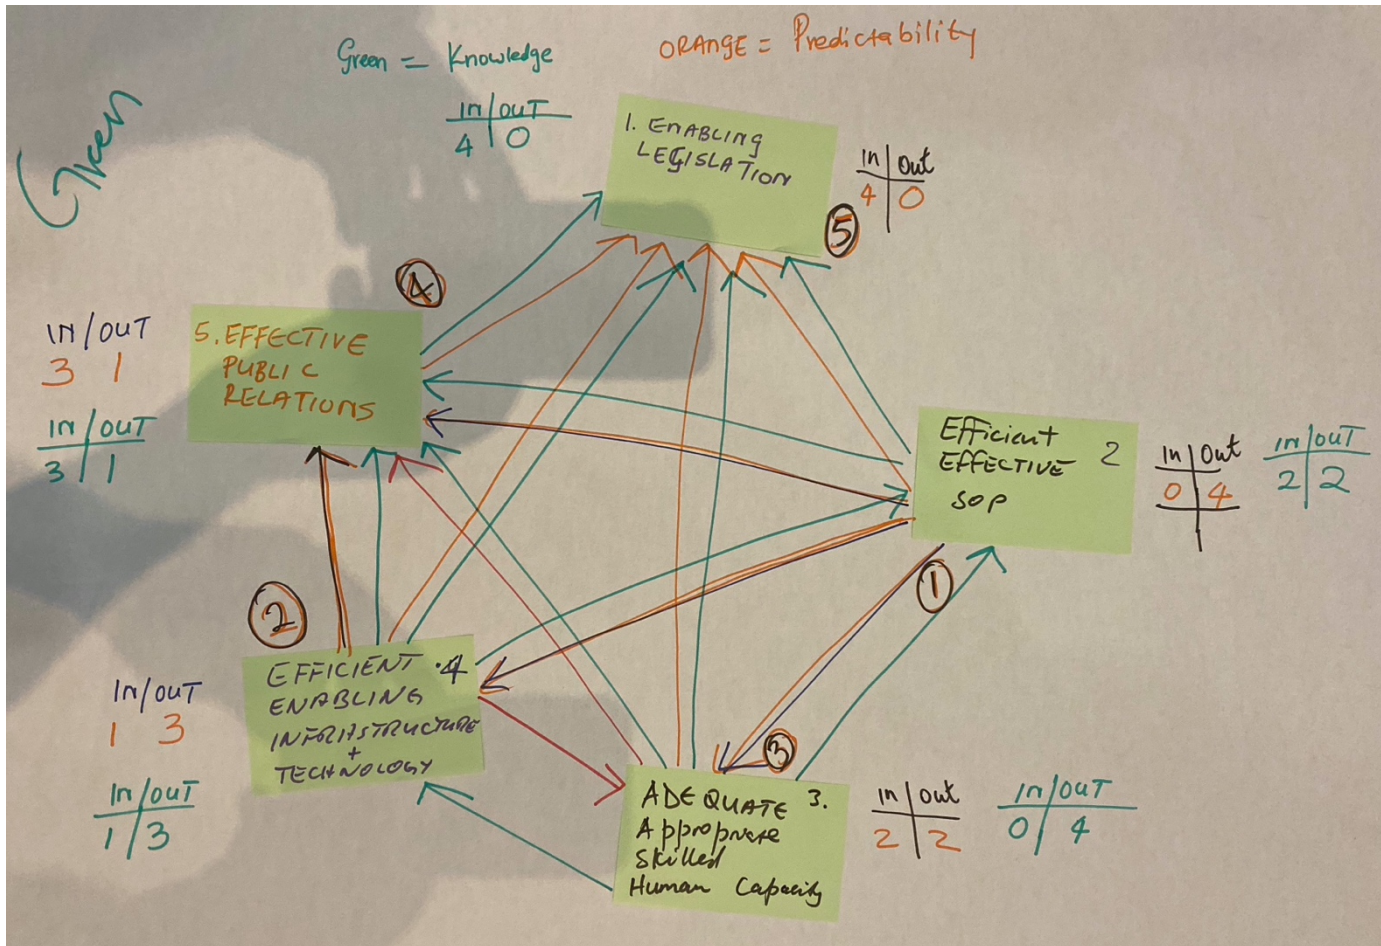 Green = Knowledge
ORANGE = Predictability
Green
In/OUT
4 | 0
1. ENABLING
LEGISLATION
In | Out
4 | 0
5
4
IN/OUT
3 1
IN/OUT
3 | 1
5. EFFECTIVE
PUBLIC
RELATIONS
Efficient
EFFECTIVE 2
SOP
In | Out
0 | 4
in/OUT
2 | 2
1
2
IN/OUT
1 3
IN/OUT
1 / 3
EFFICIENT .4
ENABLING
INFRASTRUCTURE
+
TECHNOLOGY
3
ADEQUATE 3.
Appropriate
Skilled
Human Capacity
In | Out
2 | 2
In/OUT
0 / 4